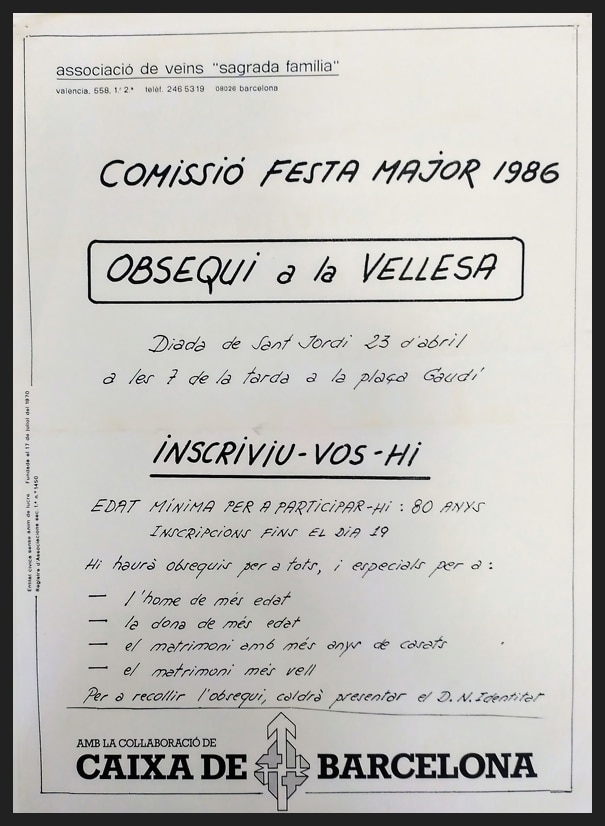 associació de veïns "sagrada família"
valencia, 558, 1.º 2.ª telèf. 246 53 19 08026 barcelona
COMISSIÓ FESTA MAJOR 1986
OBSEQUI a la VELLESA
Diada de Sant Jordi 23 d'abril
a les 7 de la tarda a la plaça Gaudí
INSCRIVIU-VOS-HI
EDAT MÍNIMA PER A PARTICIPAR-HI : 80 ANYS
INSCRIPCIONS FINS EL DIA 19
Hi haurà obsequis per a tots, i especials per a :
— l'home de més edat
— la dona de més edat
— el matrimoni amb més anys de casats
— el matrimoni més vell
Per a recollir l'obsequi, caldrà presentar el D.N.Identitat
Entitat cívica sense ànim de lucre Fundada el 17 de juliol del 1970
Registre d'Associacions sec. 1.ª n.º 1450
AMB LA COL·LABORACIÓ DE
CAIXA DE BARCELONA